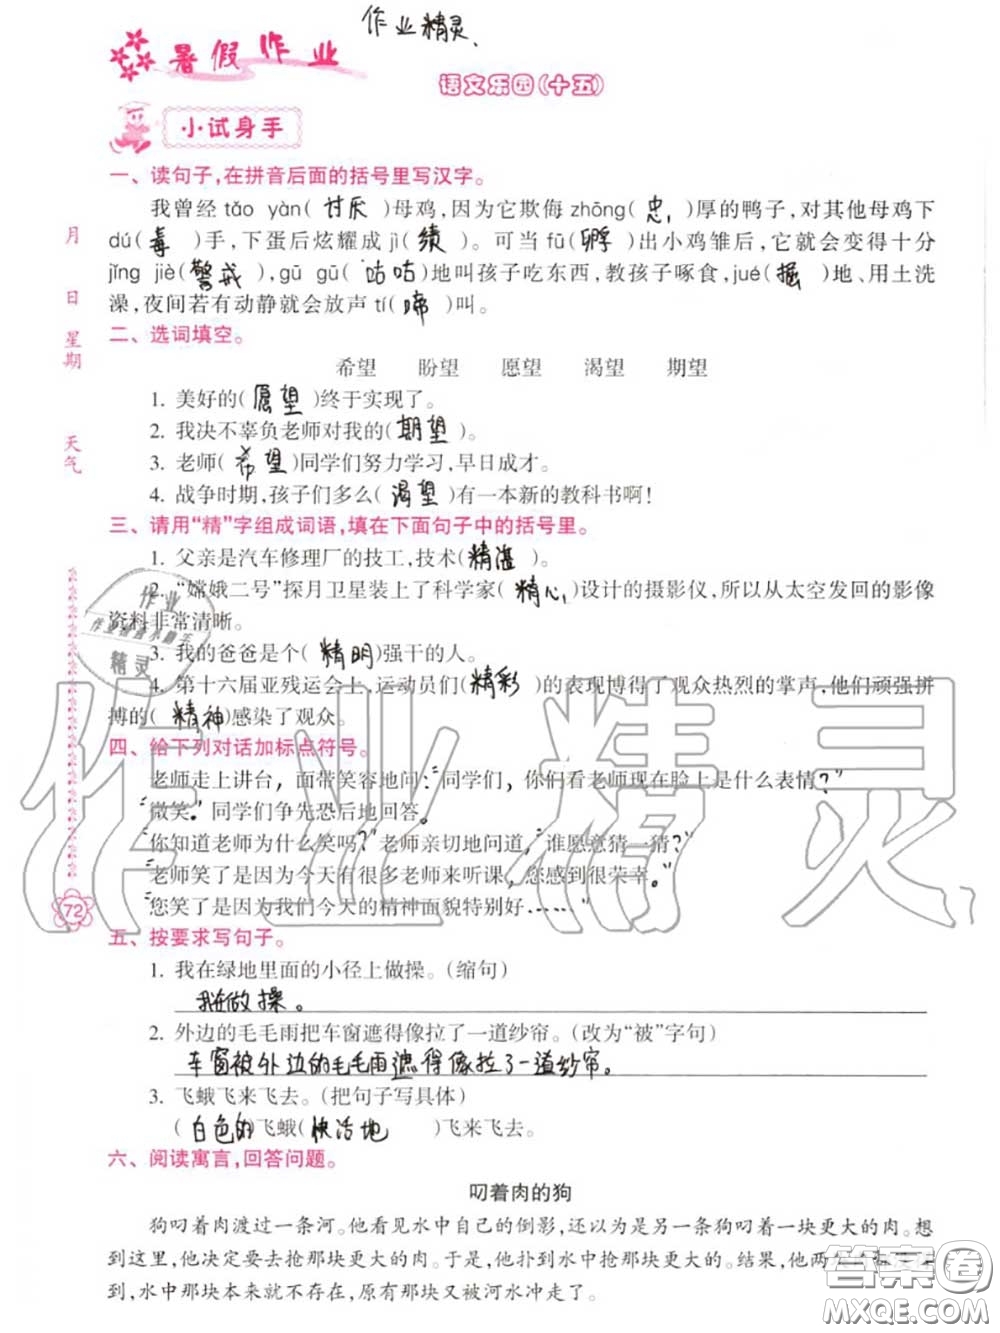 作业精灵、
暑假作业
语文乐园(十五)
小试身手
一、读句子,在拼音后面的括号里写汉字。
我曾经tǎo yàn( 讨厌 )母鸡,因为它欺侮zhōng( 忠 )厚的鸭子,对其他母鸡下
dú( 毒 )手,下蛋后炫耀成jì( 绩 )。可当fū( 孵 )出小鸡雏后,它就会变得十分
jǐng jiè( 警戒 ),gū gū( 咕咕 )地叫孩子吃东西,教孩子啄食,jué( 掘 )地、用土洗
澡,夜间若有动静就会放声tí( 啼 )叫。
二、选词填空。
希望 盼望 愿望 渴望 期望
1. 美好的( 愿望 )终于实现了。
2. 我决不辜负老师对我的( 期望 )。
3. 老师( 希望 )同学们努力学习,早日成才。
4. 战争时期,孩子们多么( 渴望 )有一本新的教科书啊!
三、请用“精”字组成词语,填在下面句子中的括号里。
1. 父亲是汽车修理厂的技工,技术( 精湛 )。
2. “嫦娥二号”探月卫星装上了科学家( 精心 )设计的摄影仪,所以从太空发回的影像
资料非常清晰。
3. 我的爸爸是个( 精明 )强干的人。
4. 第十六届亚残运会上,运动员们( 精彩 )的表现博得了观众热烈的掌声,他们顽强拼
搏的( 精神 )感染了观众。
四、给下列对话加标点符号。
老师走上讲台,面带笑容地问:“同学们,你们看老师现在脸上是什么表情?”
“微笑。”同学们争先恐后地回答。
“你知道老师为什么笑吗?”老师亲切地问道,“谁愿意猜一猜?”
“老师笑了是因为今天有很多老师来听课,您感到很荣幸。”
“您笑了是因为我们今天的精神面貌特别好……”
五、按要求写句子。
1. 我在绿地里面的小径上做操。(缩句)
我在做操。
2. 外边的毛毛雨把车窗遮得像拉了一道纱帘。(改为“被”字句)
车窗被外边的毛毛雨遮得像拉了一道纱帘。
3. 飞蛾飞来飞去。(把句子写具体)
( 白色的 )飞蛾( 快活地 )飞来飞去。
六、阅读寓言,回答问题。
叼着肉的狗
狗叼着肉渡过一条河。他看见水中自己的倒影,还以为是另一条狗叼着一块更大的肉。想
到这里,他决定要去抢那块更大的肉。于是,他扑到水中抢那块更大的肉。结果,他两
到,水中那块本来就不存在,原有那块又被河水冲走了。
月
日
星期
天气
72
作业
作业精灵小助手
精灵
作业精灵
答案卷
MXQE.COM